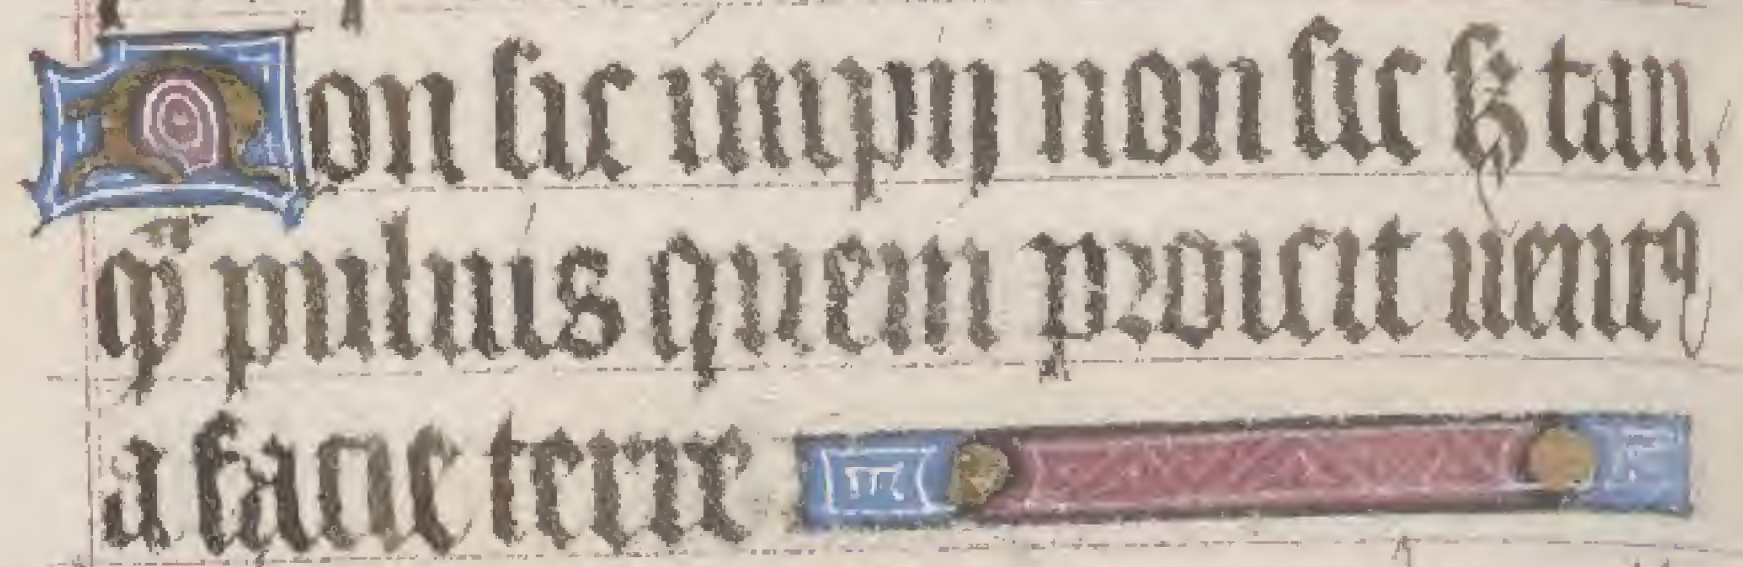 Non sic impij non sic sꝫ tan
qͣ puluis quem proicit uentꝰ
a facie terre